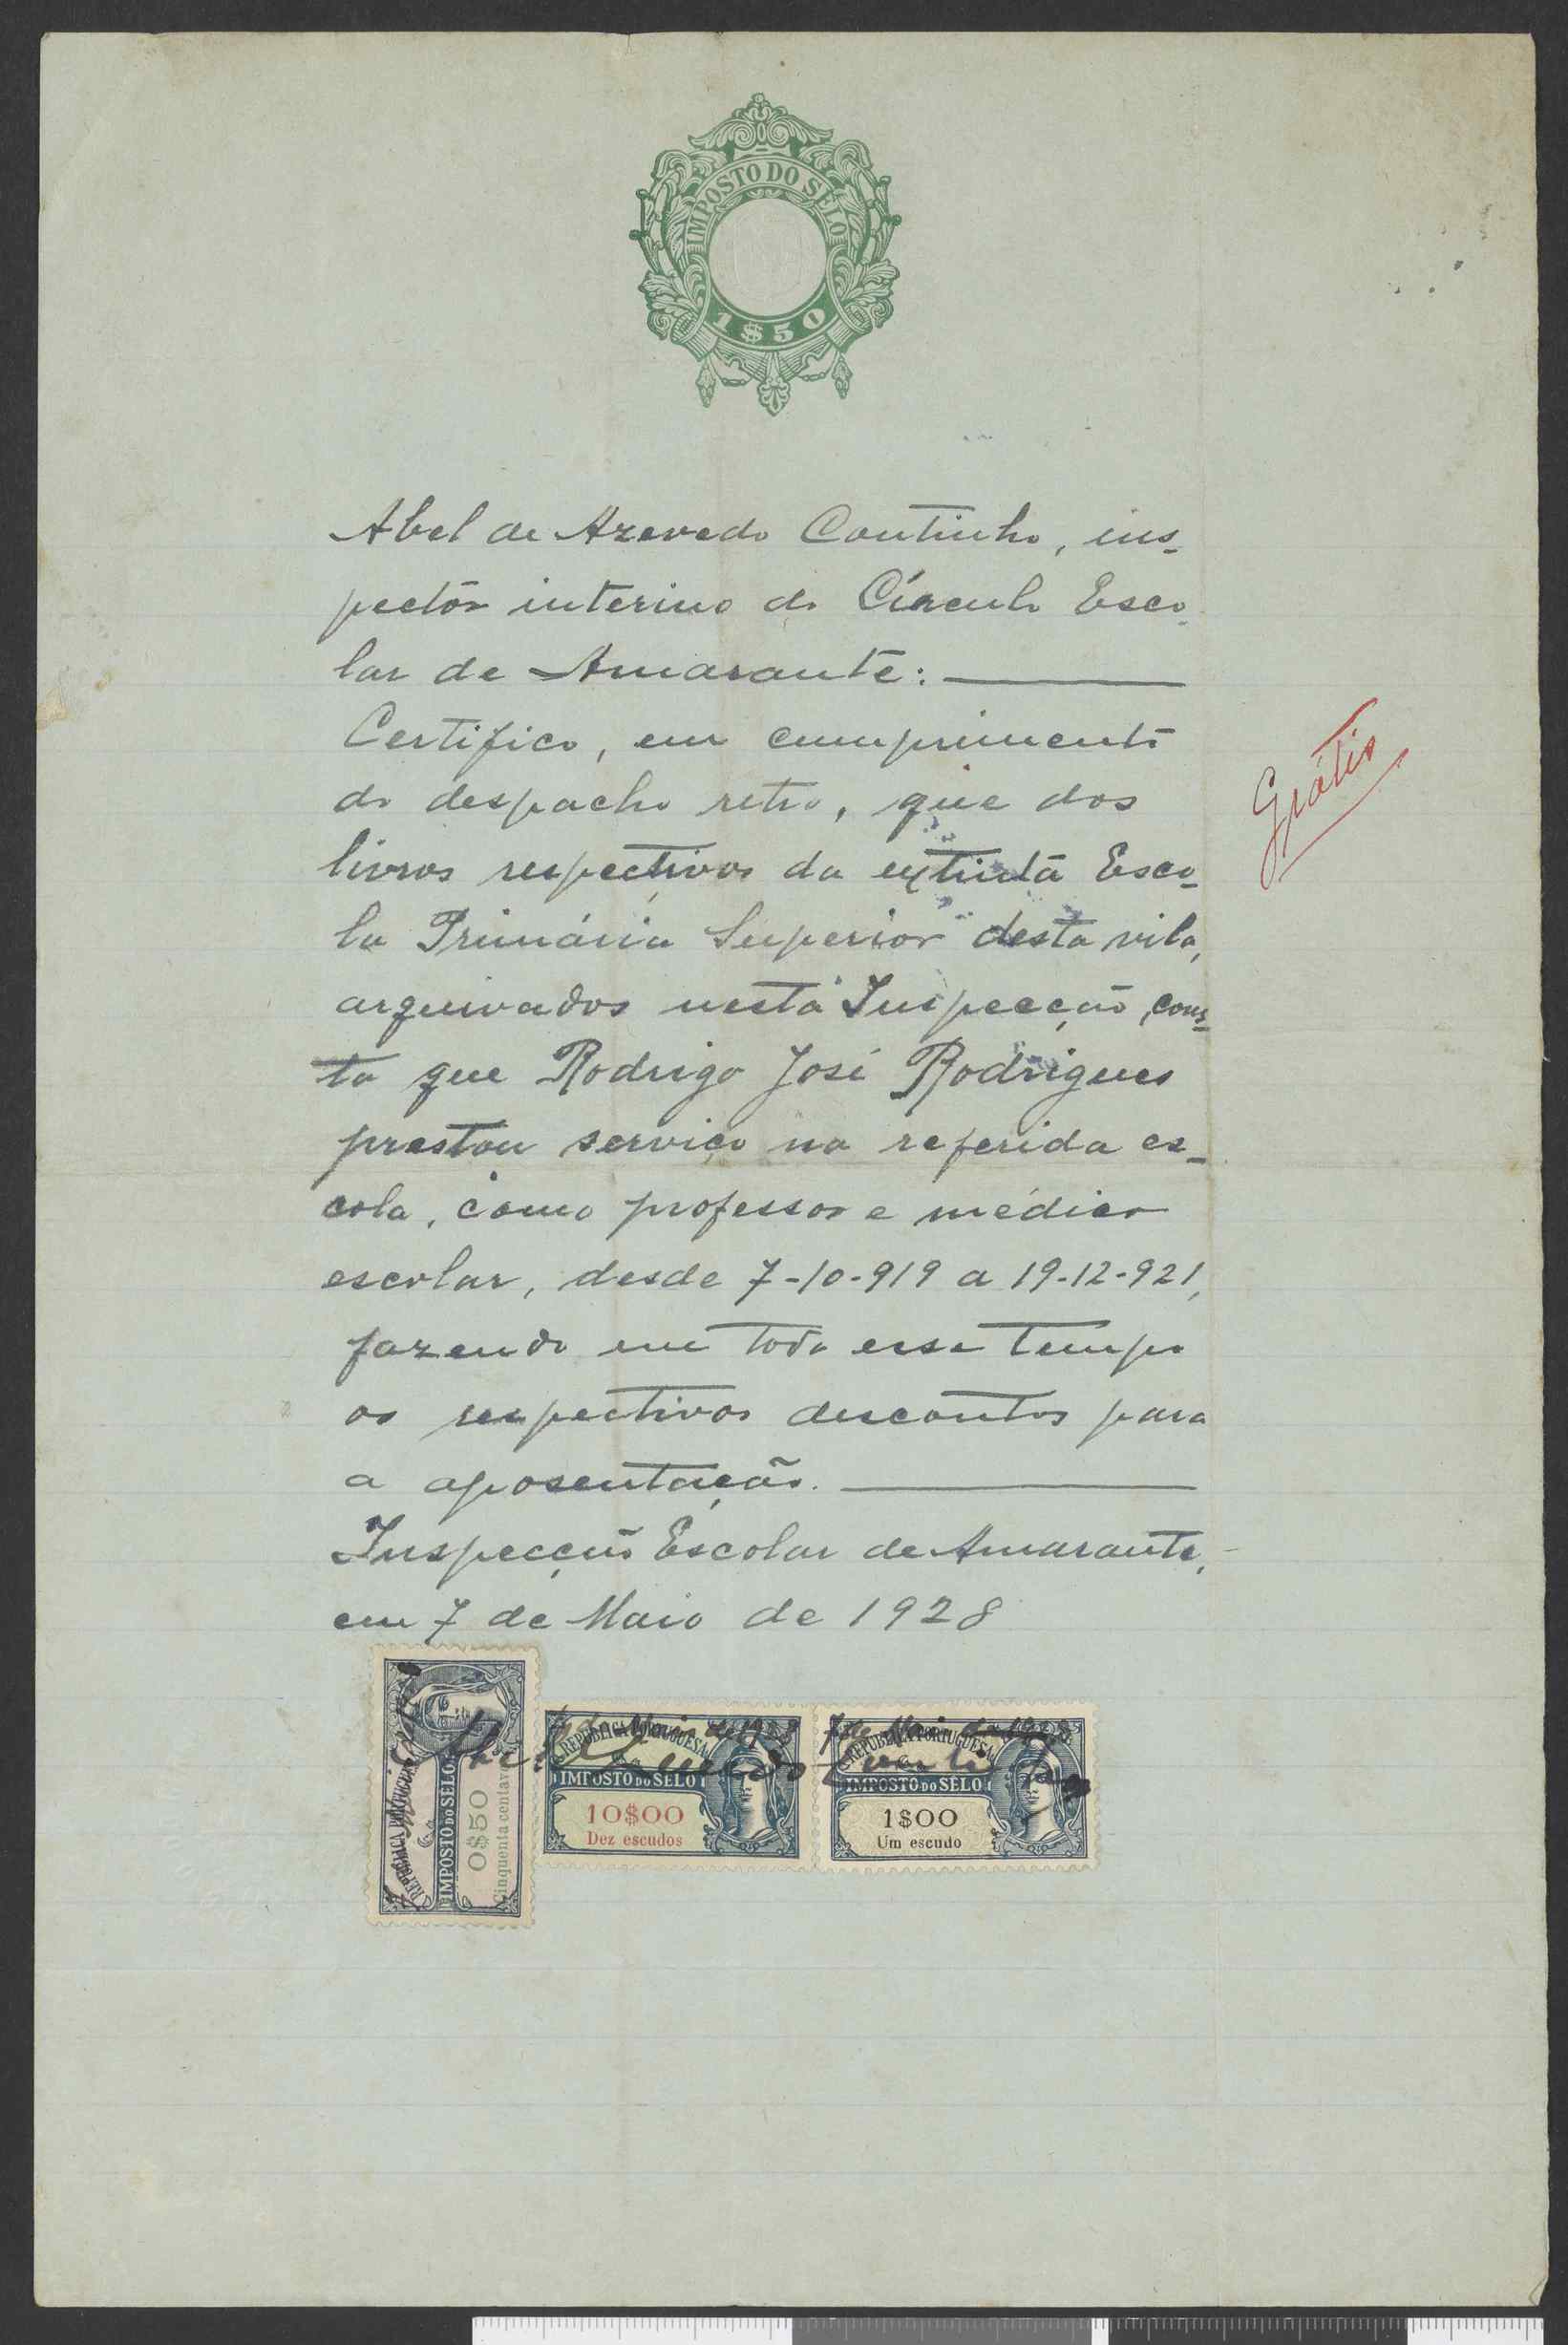 IMPOSTO DO SÊLO
1$50
Abel de Azevedo Coutinho, ins-
pectôr interino do Círculo Esco-
lar de Amarante:
Certifico, em cumprimento
do despacho retro, que dos
livros respectivos da extinta Esco-
la Primária Superior desta vila,
arquivados nesta Inspecção, cons-
ta que Rodrigo José Rodrigues
prestou serviço na referida es-
cola, como professor e médico
escolar, desde 7-10-919 a 19-12-921,
fazendo em todo esse tempo
os respectivos descontos para
a aposentação.
Grátis
Inspecção Escolar de Amarante,
em 7 de Maio de 1928
REPUBLICA PORTUGUESA
IMPOSTO DO SÊLO
0$50
Cinquenta centavos
REPUBLICA PORTUGUESA
IMPOSTO DO SÊLO
10$00
Dez escudos
REPUBLICA PORTUGUESA
IMPOSTO DO SÊLO
1$00
Um escudo
Abel Azevedo Coutinho
7 de Maio de 1928